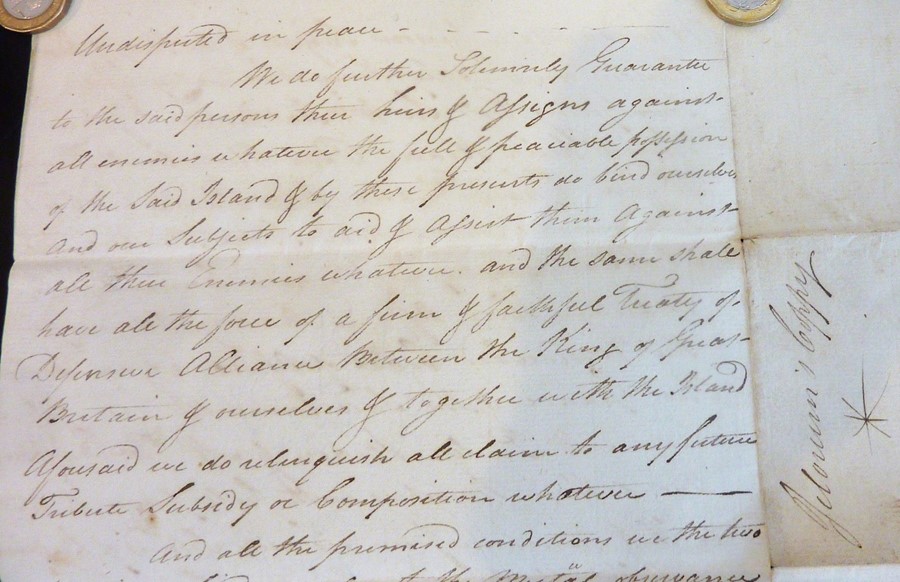 Undisputed in peace - - - - -
We do further Solemnly Guarantee
to the said persons their heirs & Assigns against
all enemies whatever the full & peaceable possession
of the Said Island & by these presents do bind ourselves
And our Subjects to aid & Assist them Against
all their Enemies whatever. and the same shall
have all the force of a firm & faithful Treaty of
Defensive Alliance Between the King of Great
Britain & ourselves & together with the Island
Aforesaid we do relinquish all claim to any future
Tribute Subsidy or Composition whatever —
And all the premised conditions we the two
to the Mutual observance
Coppy